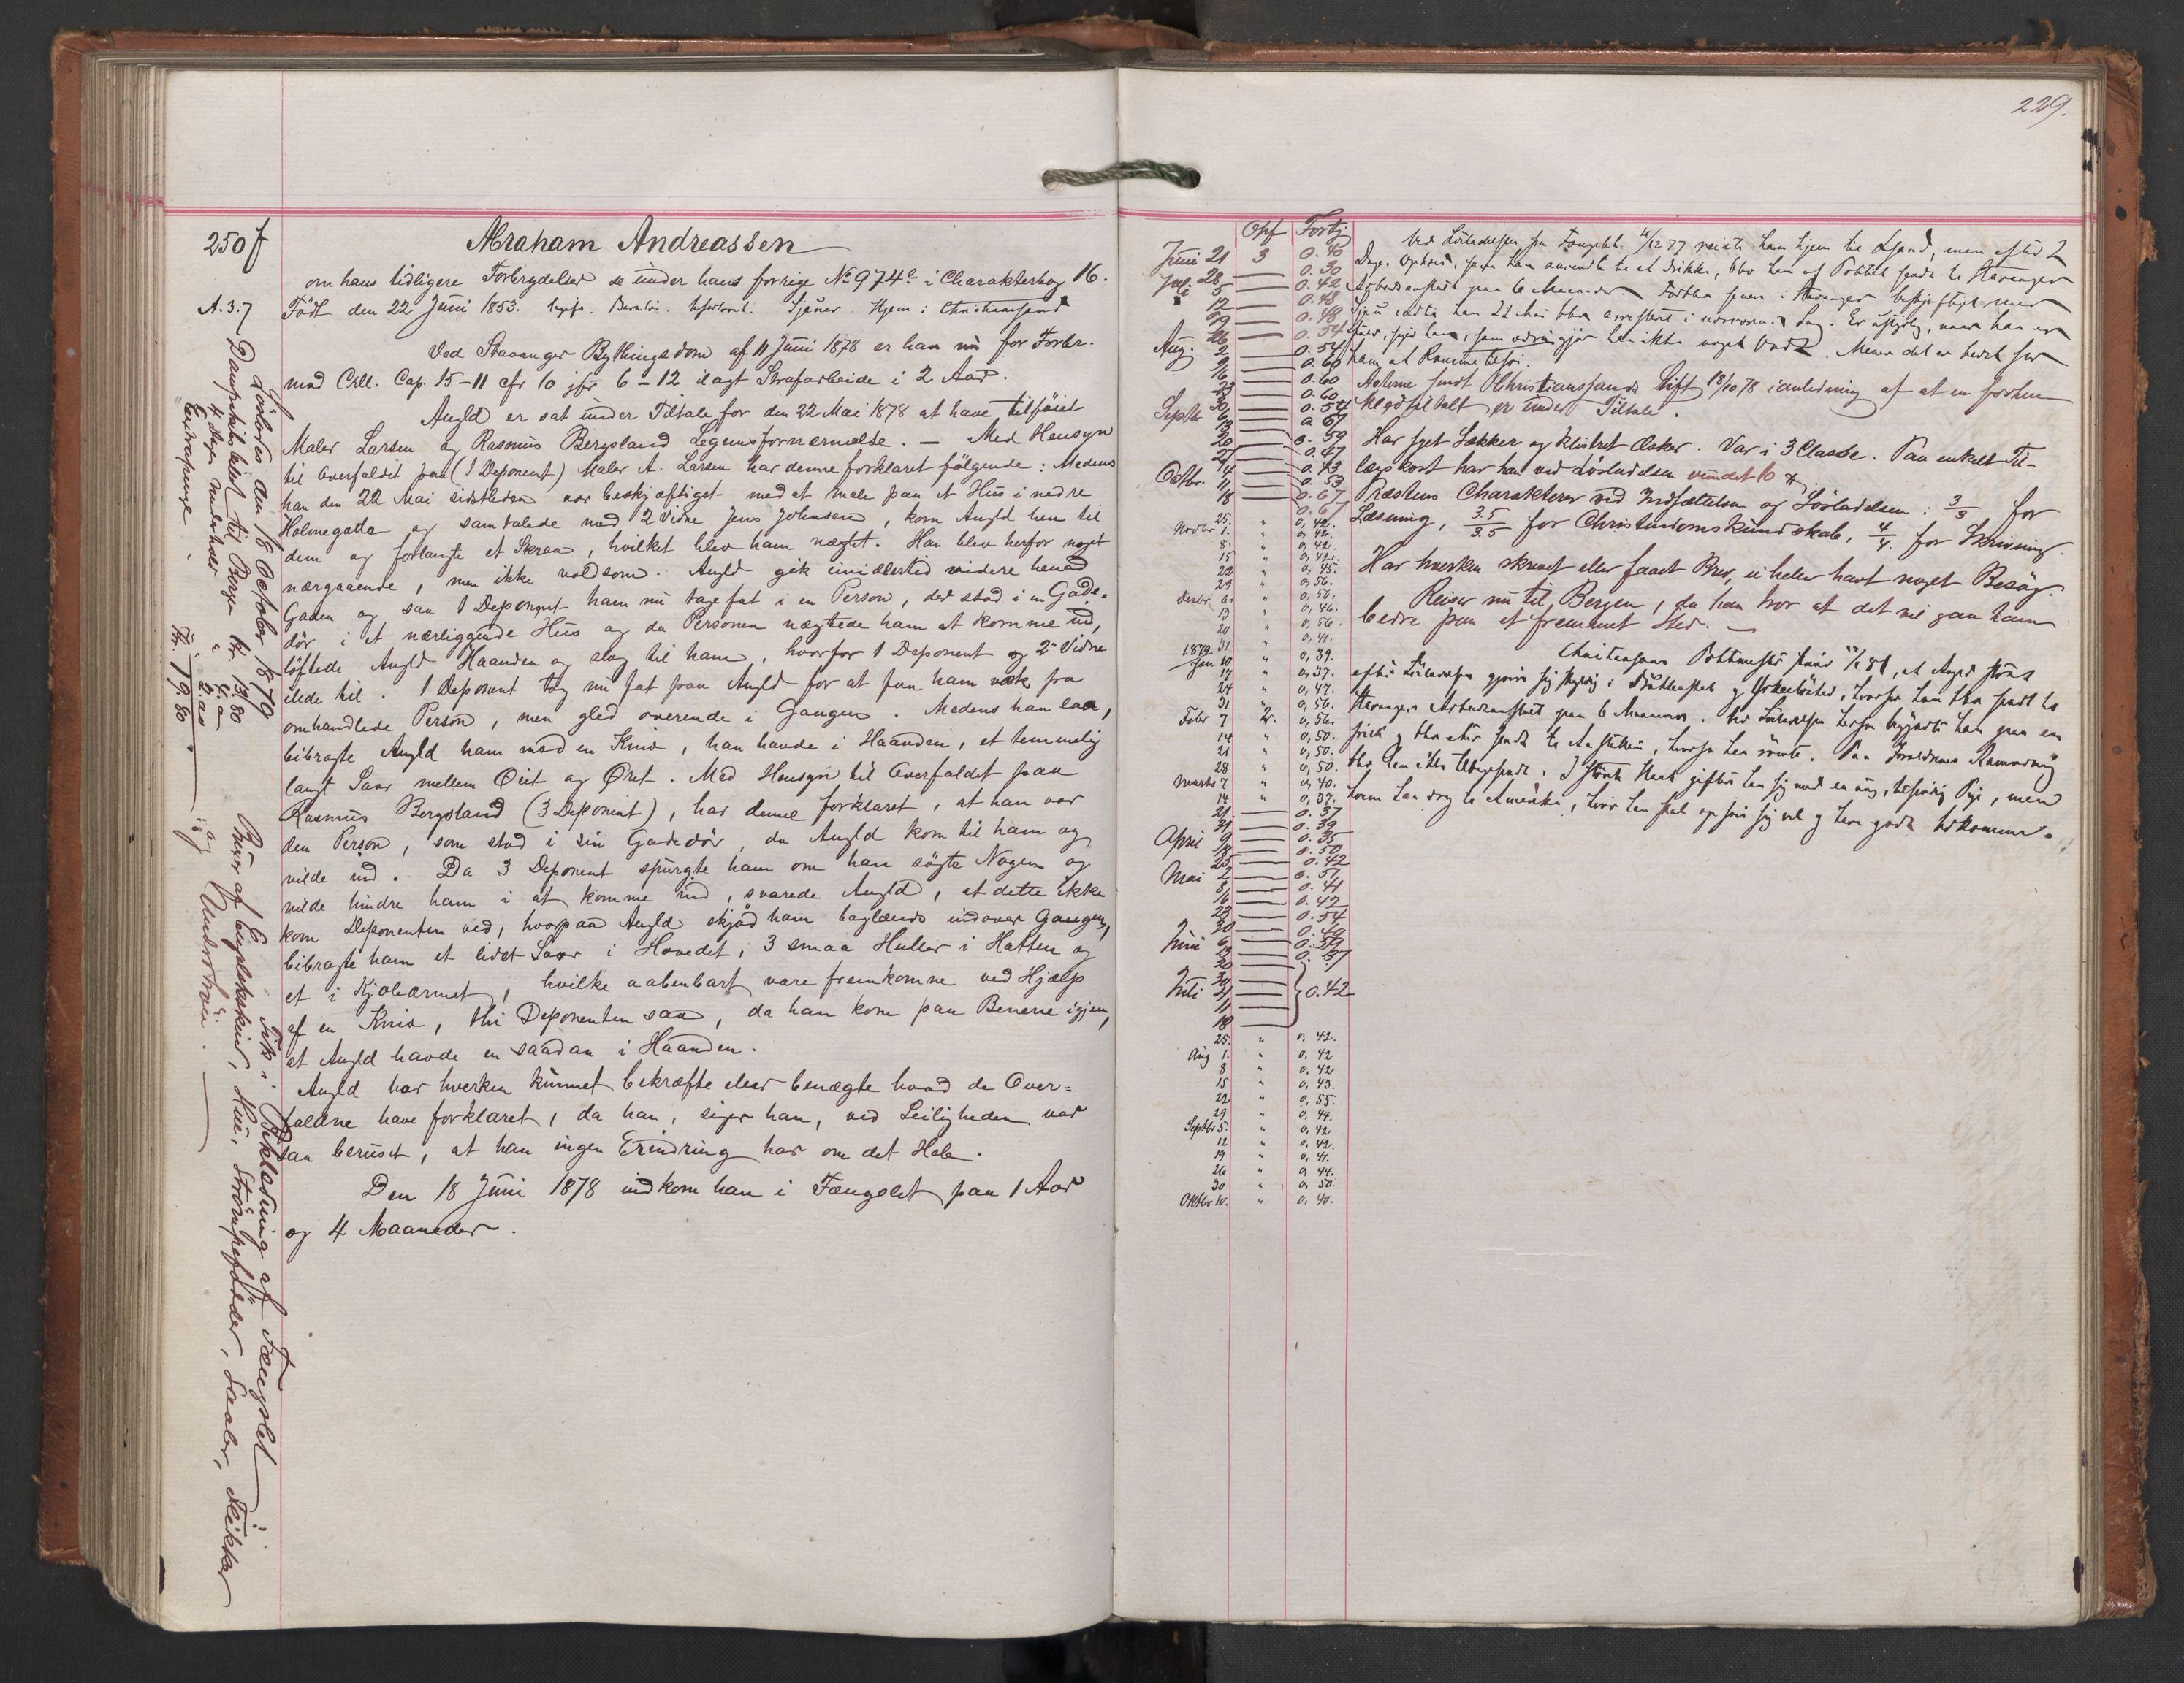 250 f
Abraham Andreassen
om hans tidligere Forbrydelser se under hans forrige No 974 e i Charakterbog 16.
A.3.7
Født den 22 Juni 1853. Hjem i Christianssand
Ved Stavanger Bythingsdom af 11 Juni 1878 er han nu for Forbr.
mod Crll. Cap. 15-11 cfr 10 jfr 6-12 ilagt Strafarbeide i 2 Aar.
Angld er sat under Tiltale for den 22 Mai 1878 at have tilføiet
Maler Larsen og Rasmus Bergsland Legemsfornærmelse. — Med Hensyn
til Overfaldet paa (1 Deponent) Maler A. Larsen har denne forklaret følgende: Medens
han den 22 Mai sidstleden var beskjæftiget med at male paa et Hus i nedre
Holmegatta og samtalede med 2 Vidne Jens Johnsen, kom Angld hen til
dem og forlangte et Skraa, hvilket blev ham nægtet. Han blev herfor noget
nærgaaende, men ikke voldsom. Angld gik imidlertid videre henad
Gaden og saa 1 Deponent ham nu tage fat i en Person, der stod i en Gade-
dør i et nærliggende Hus og da Personen nægtede ham at komme ind,
løftede Angld Haanden og slog til ham, hvorfor 1 Deponent og 2 Vidne
ilede til. 1 Deponent tog nu fat paa Angld for at faa ham væk fra
omhandlede Person, men gled overende i Gangen. Medens han laa,
bibragte Angld ham med en Kniv, han havde i Haanden, et temmelig
langt Saar mellem Øiet og Øret. Med Hensyn til Overfaldet paa
Rasmus Bergsland (3 Deponent), har denne forklaret, at han var
den Person, som stod i sin Gadedør, da Angld kom til ham og
vilde ind. Da 3 Deponent spurgte ham om han søgte Nogen og
vilde hindre ham i at komme ind, svarede Angld, at dette ikke
kom Deponenten ved, hvorpaa Angld skjød ham baglænds indover Gangen,
bibragte ham et lidet Saar i Hovedet, 3 smaa Huller i Hatten og
et i Kjoleærmet, hvilke aabenbart vare fremkomne ved Hjælp
af en Kniv, thi Deponenten saa, da han kom paa Benene igjen,
at Angld havde en saadan i Haanden.
Angld har hverken kunnet bekræfte eller benægte hvad de Over-
faldne have forklaret, da han, siger han, ved Leiligheden var
saa beruset, at han ingen Erindring har om det Hele.
Den 18 Juni 1878 indkom han i Fængslet paa 1 Aar
og 4 Maaneder.
Løslades den 18 October 1879
Dampskibsbillet til Bergen Kr. 13,80
4 Dages Underhold
Kr. 19,80
Fik i Beklædning af Fængslet:
Buxer af Engelskskind, Hue, Strømpefødder, Saaler, Flikker
og Undertrøie.
229.
Opf Fortj
Juni 21 3 0.40
28 — 0.30
Juli 5 — 0.42
12 — 0.48
19 — 0.48
26 — 0.54
Aug. 2 — 0.54
9 — 0.60
16 — 0.60
23 — 0.60
30 — 0.54
Septbr 6 — 0.67
13 — 0.59
20 — 0.47
27 — 0.43
Octbr. 4 — 0.53
11 — 0.67
18 — 0.67
25. " 0,42.
Novbr 1. " 0,42.
8. " 0,42.
15 " 0,42.
22 " 0,45.
29 " 0,56.
Decbr 6. " 0,56.
13 " 0,46.
20 " 0,56.
31 " 0,41.
1879
Jan 10 " 0,39.
17 " 0,37.
24 " 0,47.
31 " 0,56.
Febr 7 2. 0,56.
14 " 0,50.
21 " 0,50.
28 " 0,50.
Marts 7 " 0,40.
14 " 0,37.
21 — 0.37
31 — 0.39
April 9 — 0.35
18 — 0.50
25 — 0.42
Mai 2 — 0.51
8 — 0.41
16 — 0.42
23 — 0.54
30 — 0.40
Juni 6 — 0.59
13 — 0.37
20 —
30 —
Juli 4 — 0.42
11 —
18 —
25. " 0,42.
Aug 1. " 0,42
8 " 0,42
15 " 0,43.
22 " 0,55.
29 " 0,44.
Septbr 5. " 0,42
12 " 0,42.
19 " 0,41.
26 " 0,44.
30 " 0,50.
Oktbr 10. " 0,40.
Ved Løsladelsen fra Fængslet reiste han hjem til Xsand, men efter 2
Dages Ophold, som han anvendte til at drikke, blev han af Politiet sendt til Stavanger
Arbeidsanstalt paa 6 Maaneder.
ham at komme tilsjøs.
Noterne sendt Christianssands Stift 18/10 78 i anledning af at en forhen
Medfiltalt er under Tiltale.
Har syet Sækker og klistret Æsker. Var i 3 Classe. Paa enkelt Til-
lægskost har han ved Løsladelsen vundet 10
Præstens Charakterer ved Indsættelsen og Løsladelsen: 3/3 for
Læsning, 3.5/3.5 for Christendomskundskab, 4/4 for Skrivning.
Har hverken skrevet eller faaet Brev, ei heller havt noget Besøg.
Reiser nu til Bergen, da han tror at det vil gaa ham
bedre paa et fremmet Sted. —
efter Løsladelsen gjorde sig skyldig i Drukkenskab og Ørkesløshed, hvorfor han blev sendt til
Stavanger Arbeidsanstalt paa 6 Maaneder.
hvem han drog til Amerika, hvor han skal opføre sig vel og have godt Udkomme.